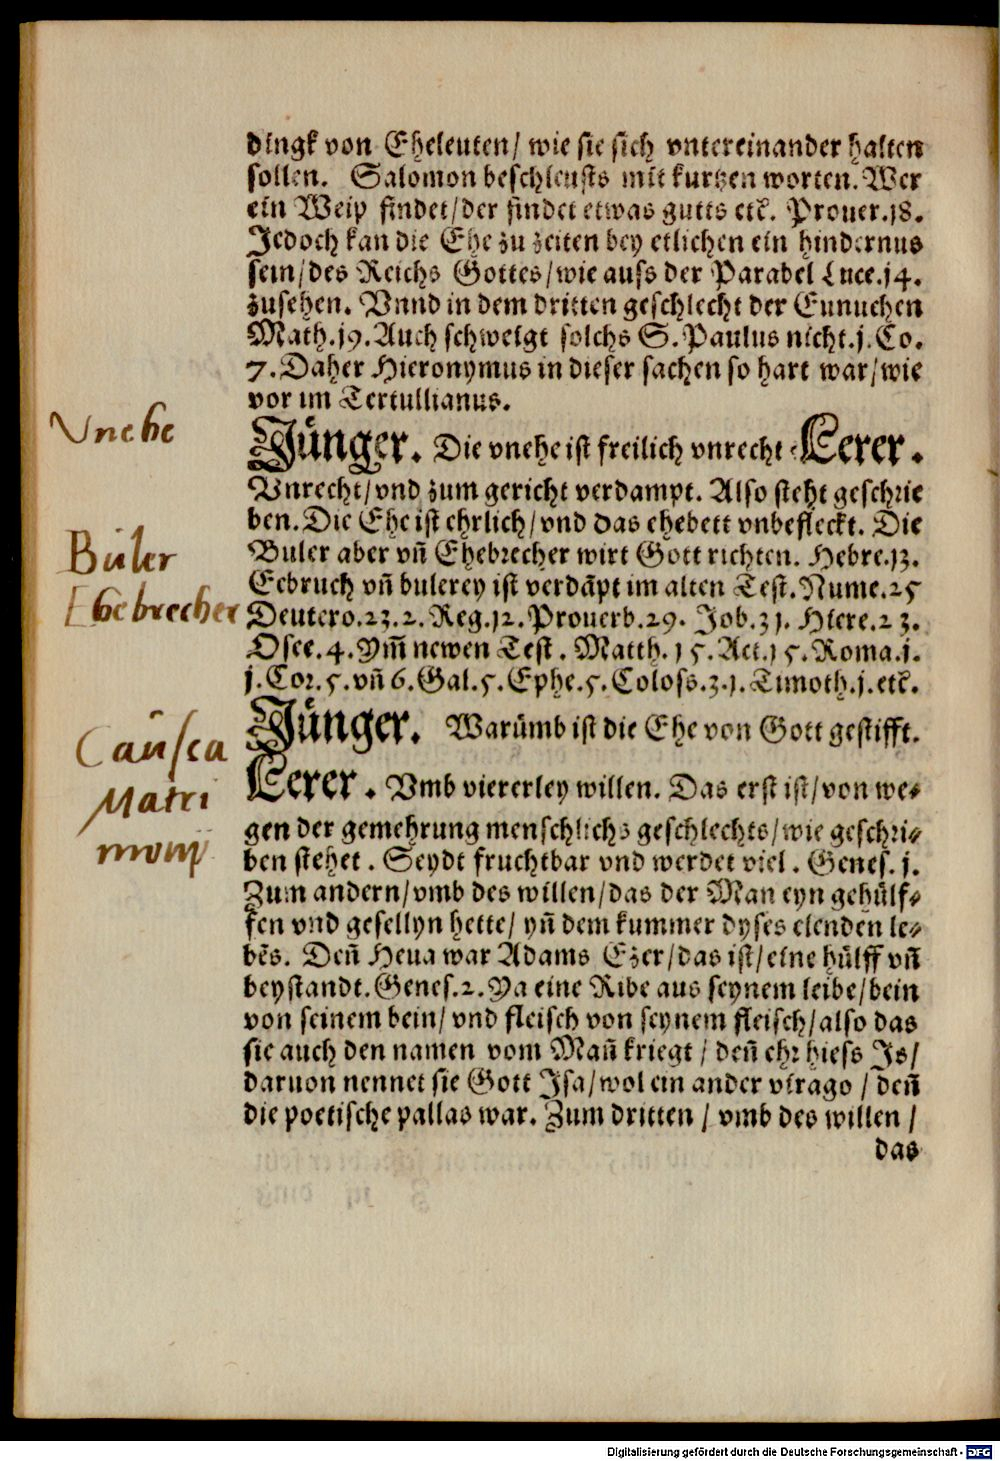 dingk von Eheleuten/ wie sie sich vntereinander halten
sollen. Salomon beschleusts mit kurtzen worten. Wer
ein Weip findet/der findet etwas gutts etc. Prouer.18.
Jedoch kan die Ehe zu zeiten bey etlichen ein hindernus
sein/des Reichs Gottes/wie auss der Parabel Luce.14.
zusehen. Vnnd in dem dritten geschlecht der Eunuchen
Math.19.Auch schweigt solchs S.Paulus nicht.j.Co.
7.Daher Hieronymus in dieser sachen so hart war/wie
vor im Tertullianus.
Vnehe
Jünger. Die vnehe ist freilich vnrecht. Lerer.
Vnrecht/vnd zum gericht verdampt. Also steht geschrie
ben.Die Ehe ist ehrlich/vnd das ehebett vnbefleckt. Die
Büler
Buler aber vn̄ Ehebrecher wirt Gott richten. Hebre.13.
Eebruch vn̄ bulerey ist verdāpt im alten Test.Nume.25
Ehebrecher
Deutero.23.2.Reg.12.Prouerb.29. Job.31. Hiere.23.
Osee.4.Ym̄ newen Test. Matth.15.Act.15.Roma.j.
j.Cor.5.vn̄ 6.Gal.5.Ephe.5.Coloss.3.1.Timoth.j.etc.
Caussa
Matri
monij
Jünger. Warümb ist die Ehe von Gott gestifft.
Lerer. Vmb viererley willen. Das erst ist/von we⸗
gen der gemehrung menschlichs geschlechts/wie geschri⸗
ben stehet. Seydt fruchtbar vnd werdet viel. Genes.j.
Zum andern/vmb des willen/das der Man eyn gehülf⸗
fen vnd gesellyn hette/ yn̄ dem kummer dyses elenden le⸗
bēs. Den̄ Heua war Adams Ezer/das ist/eine hülff vn̄
beystandt.Genes.2.Ya eine Ribe aus seynem leibe/bein
von seinem bein/vnd fleisch von seynem fleisch/also das
sie auch den namen vom Man̄ kriegt/den̄ ehr hiess Is/
daruon nennet sie Gott Isa/wol ein ander virago/den̄
die poetische pallas war. Zum dritten/vmb des willen/
das
Digitalisierung gefördert durch die Deutsche Forschungsgemeinschaft - DFG